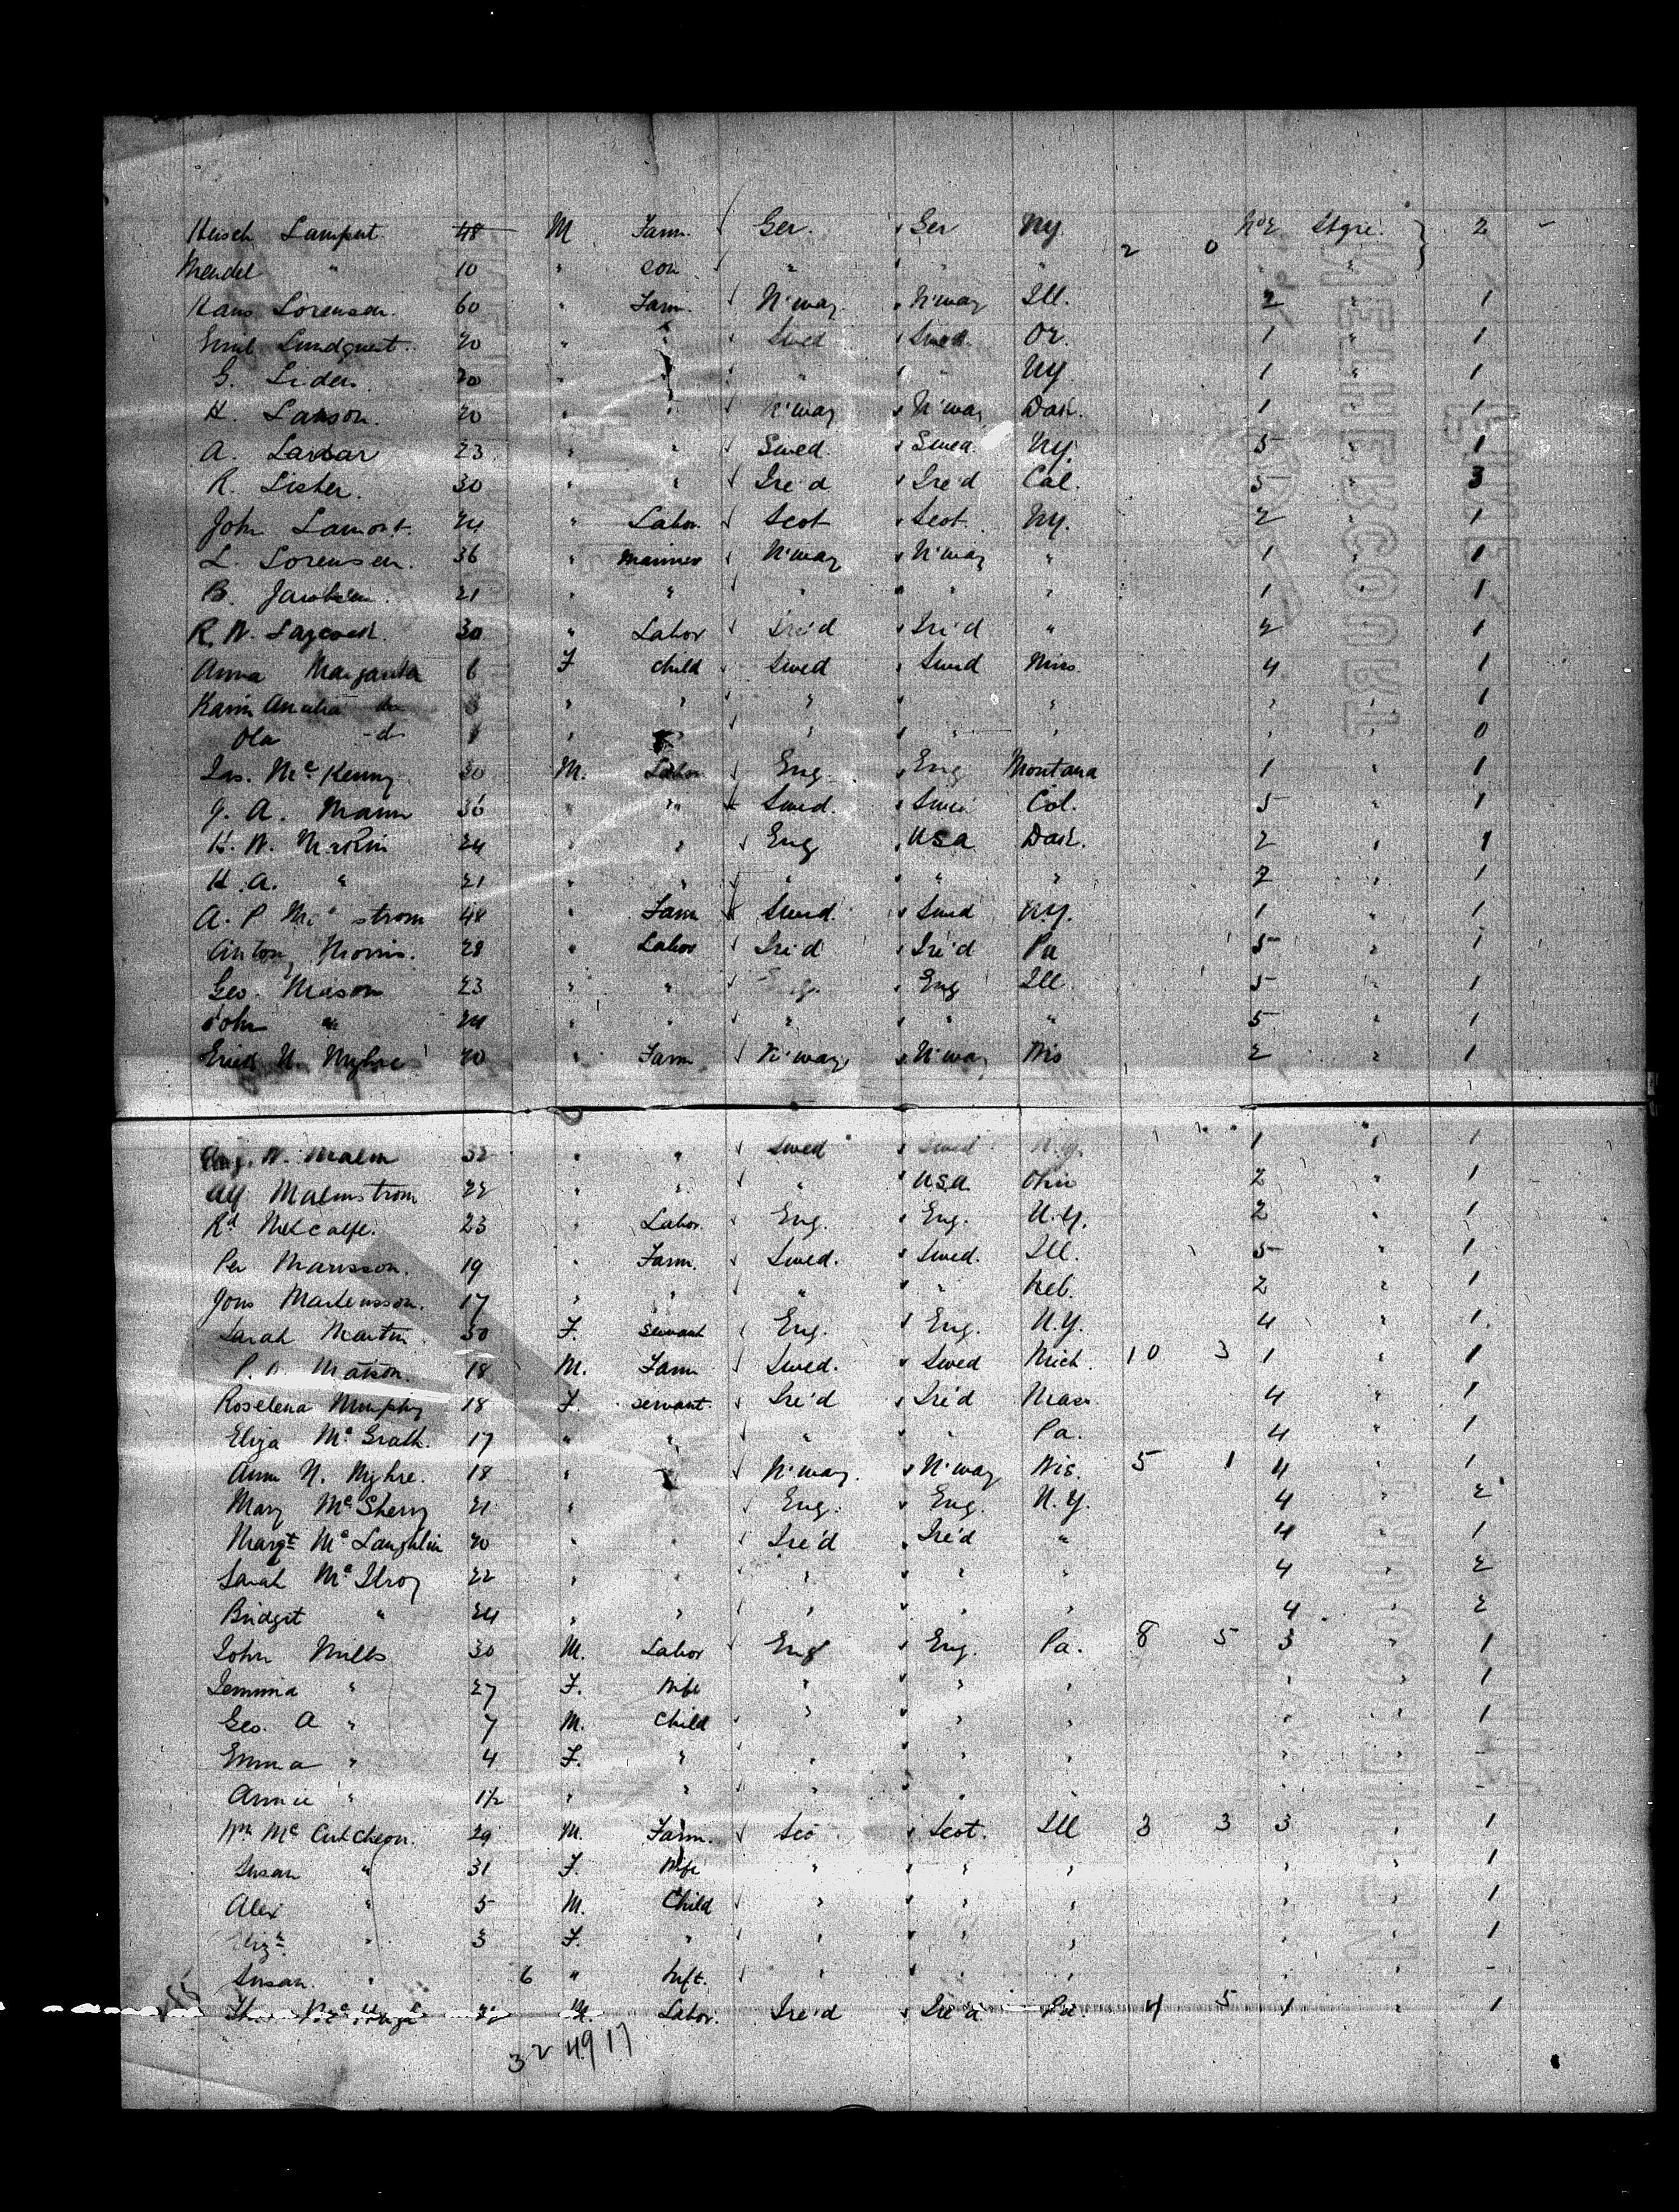 Lamput 48 M Farm. Ger. Ger Ny 2 0 No 2 Stgre. 2 -
Mendel " 10 " son " " " " "
Hans Lorensen. 60 " Farm. N'way N'way Ill. 2 " 1
Emil Lundquist. 20 " " Swed Swed. Or. 1 " 1
G. Liden. 20 " " " " Ny 1 " 1
H. Larson. 20 " " N'way N'way Dak. 1 " 1
A. 23 " " Swed. Swed. Ny. 5 " 1
R. Lister. 30 " " Ire'd Ire'd Cal. 5 " 3
John Lamont. 24 " Labor Scot Scot. Ny. 2 " 1
L. Lorensen. 36 " Mariner N'way N'way " 1 " 1
B. 21 " " " " " 1 " 1
R. W. Laycock. 30 " Labor Ire'd Ire'd " 2 " 1
Anna Margarita 6 F child Swed Swed 4 " 1
Karin do " " " " " " 1
Ola do " " " " " " 0
Jas. Mc Kenny 30 M. Labor Eng. Eng Montana 1 " 1
J. A. Mann 36 " " Swed. Swed Col. 5 " 1
H. W. 24 " " Eng USA Dak. 2 " 1
H. A. " 21 " " " " " 2 " 1
A. P. strom 48 " Farm Swed. Swed Ny. 1 " 1
Morris. 28 " Labor Ire'd Ire'd Pa 5 " 1
Geo. Mason 23 " " Eng. Eng Ill. 5 " 1
John " 24 " " " " " 5 " 1
Erick N. Myhre 40 " Farm N'way N'way Wis 2 " 1
Aug. W. Malm 32 " " Swed Swed N.y. 1 " 1
Alf Malmstrom 22 " " " USA Ohio 2 " 1
Rd Metcalfe. 23 " Labor. Eng. Eng. N.Y. 2 " 1
Per Mansson. 19 " Farm. Swed. Swed. Ill. 5 " 1
Jons Martensson. 17 " " " " Neb. 2 " 1
Sarah Martin 30 F. servant Eng. Eng. N.Y. 4 " 1.
P. Matson. 18 M. Farm Swed. Swed Mich. 10 3 1 " 1
Roselena Murphy 18 F. servant. Ire'd Ire'd Mass. 4 " 1
Eliza Mc Grath. 17 " " " " Pa. 4 " 1
Ann N. Myhre. 18 " " N'way. N'way Wis. 5 1 4 " 1
Mary Mc Sherry 21 " " Eng. Eng. N.Y. 4 " 2
Margt Mc Laughlin 20 " " Ire'd Ire'd " 4 " 1
Sarah Mc Ilroy 22 " " " " " 4 " 2
Bridget " 24 " " " " " 4 " 2
John Mills 30 M. Labor Eng Eng. Pa. 8 5 3 " 1
Jemima " 27 F. Wife " " " " " 1
Geo. A " 7 M. Child " " " " " 1
Emma " 4 F. " " " " " " -
Annie " 1½ " " " " " " " -
Wm Mc Cutcheon. 29 M. Farm. Sco Scot. Ill 3 3 3 " 1
Susan " 31 F. Wife " " " " " 1
Alex " 5 M. Child " " " " " 1
Eliza. " 3 F. " " " " " " 1
Susan. " 6 " Inft. " " " " " -
M. Labor. Ire'd Ire'd Pa. 4 5 1 " 1
32 49 17